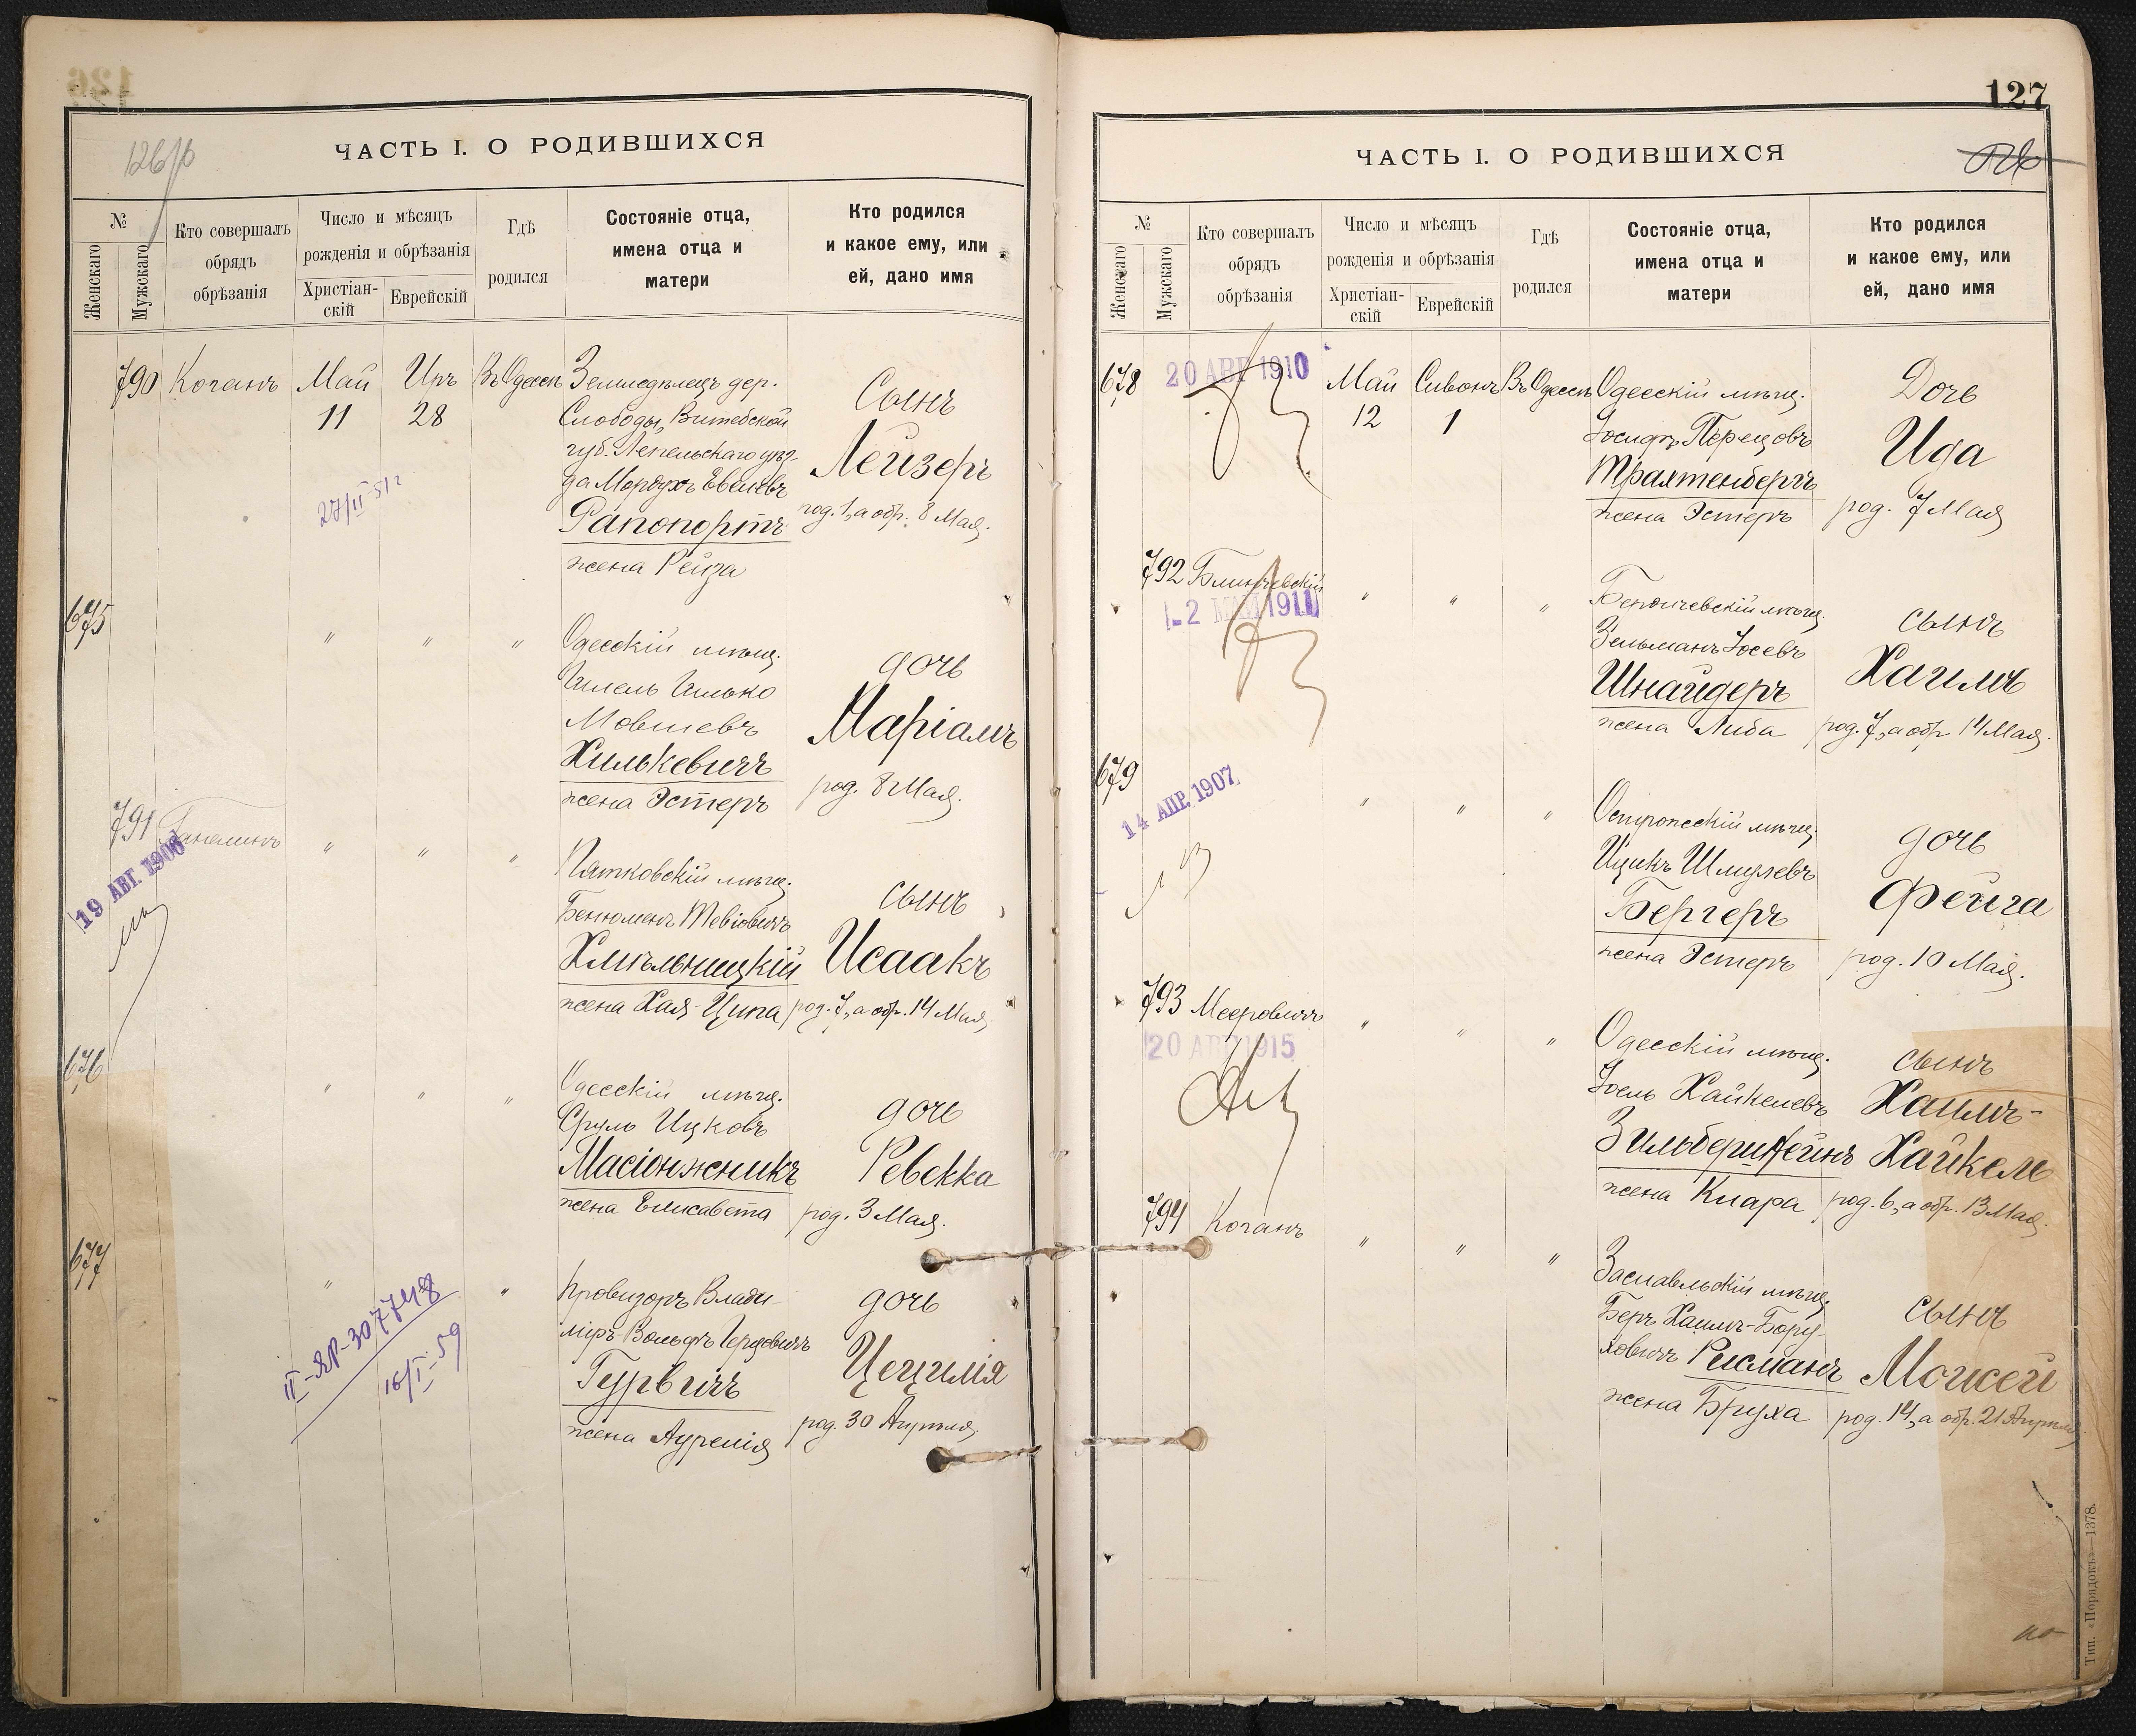 126
126/об
ЧАСТЬ I. О РОДИВШИХСЯ
№
Женскаго
Мужскаго
Кто совершалъ
обрядъ
обрѣзанія
Число и мѣсяцъ
рожденія и обрѣзанія
Христіан-
скій
Еврейскій
Гдѣ
родился
Состояніе отца,
имена отца и
матери
Кто родился
и какое ему, или
ей, дано имя
790 Коганъ Май Иръ Въ Одессѣ Земледѣлецъ дер.
11 28 Слободы, Витебской
губ. Лепельскаго уѣз-
да Мордухъ Евелевъ
Рапопортъ
жена Рейза
Сынъ
Лейзеръ
род. 1, а обр. 8 Мая.
27/II-51г
675 " " " Одесскій мѣщ.
Илель Илько
Мовшевъ
Хилькевичъ
жена Эстеръ
дочь
Маріамъ
род. 8 Мая.
791 Ганелинъ " " " Пятковскій мѣщ.
19 АВГ. 1906
Бенюменъ Тевіовичъ
Хмѣльницкій
жена Хая-Ципа
сынъ
Исаакъ
род. 7, а обр. 14 Мая.
676 " " " Одесскій мѣщ.
Сруль Ицковъ
Масіонжникъ
жена Елисавета
дочь
Ревекка
род. 3 Мая.
677 " " Провизоръ Влади-
міръ-Вольфъ Герцовичъ
Гурвичъ
жена Аурелія
дочь
Цецилія
род. 30 Апрѣля.
II-ЯР-307748
16/I-59
127
ЧАСТЬ I. О РОДИВШИХСЯ
№
Женскаго
Мужскаго
Кто совершалъ
обрядъ
обрѣзанія
Число и мѣсяцъ
рожденія и обрѣзанія
Христіан-
скій
Еврейскій
Гдѣ
родился
Состояніе отца,
имена отца и
матери
Кто родился
и какое ему, или
ей, дано имя
678 20 АВГ 1910 Май Сивонъ Въ Одессѣ Одесскій мѣщ.
12 1 Іосифъ Перецовъ
Трахтенбергъ
жена Эстеръ
Дочь
Ида
род. 7 Мая
792 Блинчевскій " " " Бердичевскій мѣщ.
-2 МАЙ 1911
Зельманъ Іосевъ
Шнайдеръ
жена Либа
сынъ
Хаимъ
род. 7, а обр. 14 Мая.
679 " " " Остропольскій мѣщ.
14 АПР. 1907
Ицикъ Шмулевъ
Бергеръ
жена Эстеръ
дочь
Фейга
род. 10 Мая.
793 Мееровичъ " " " Одесскій мѣщ.
20 1915
Іоель Хайкелевъ
Зильберштейнъ
жена Клара
сынъ
Хаимъ-
Хайкель
род. 6, а обр. 13 Мая.
794 Коганъ " " " Заславльскій мѣщ.
Беръ Хаимъ-Бору-
ховичъ Рисманъ
жена Бруха
сынъ
Моисей
род. 14, а обр. 21 Апрѣля
Тип. «Порядокъ»—1378.